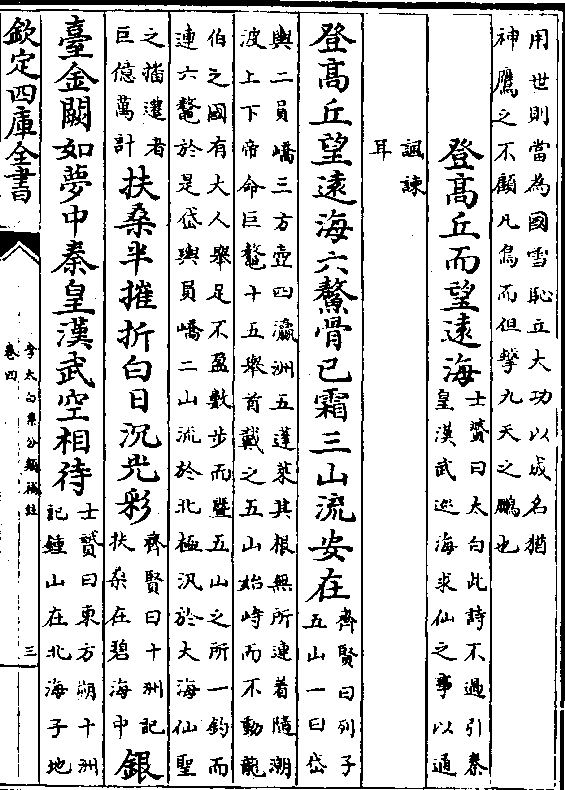 用世則當為國雪恥立大功以成名猶
神鷹之不顧凡鳥而但擊九天之鵬也
登高丘而望遠海
士贇曰太白此詩不過引秦
皇漢武巡海求仙之事以通
諷諫
耳
登高丘望遠海六鰲骨已霜三山流安在
齊賢曰列子
五山一曰岱
輿二員嶠三方壺四瀛洲五蓬萊其根無所連着隨潮
波上下帝命巨鼇十五舉首戴之五山始峙而不動龍
伯之國有大人舉足不盈數步而曁五山之所一釣而
連六鼇於是岱輿員嶠二山流於北極沉於大海仙聖
之播遷者
巨億萬計
扶桑半摧折白日沉光彩
齊賢曰十洲記
扶桑在碧海中
銀
臺金闕如夢中秦皇漢武空相待
士贇曰東方朔十洲
記鍾山在北海子地
欽定四庫全書
李太白集分類補註
卷四
三